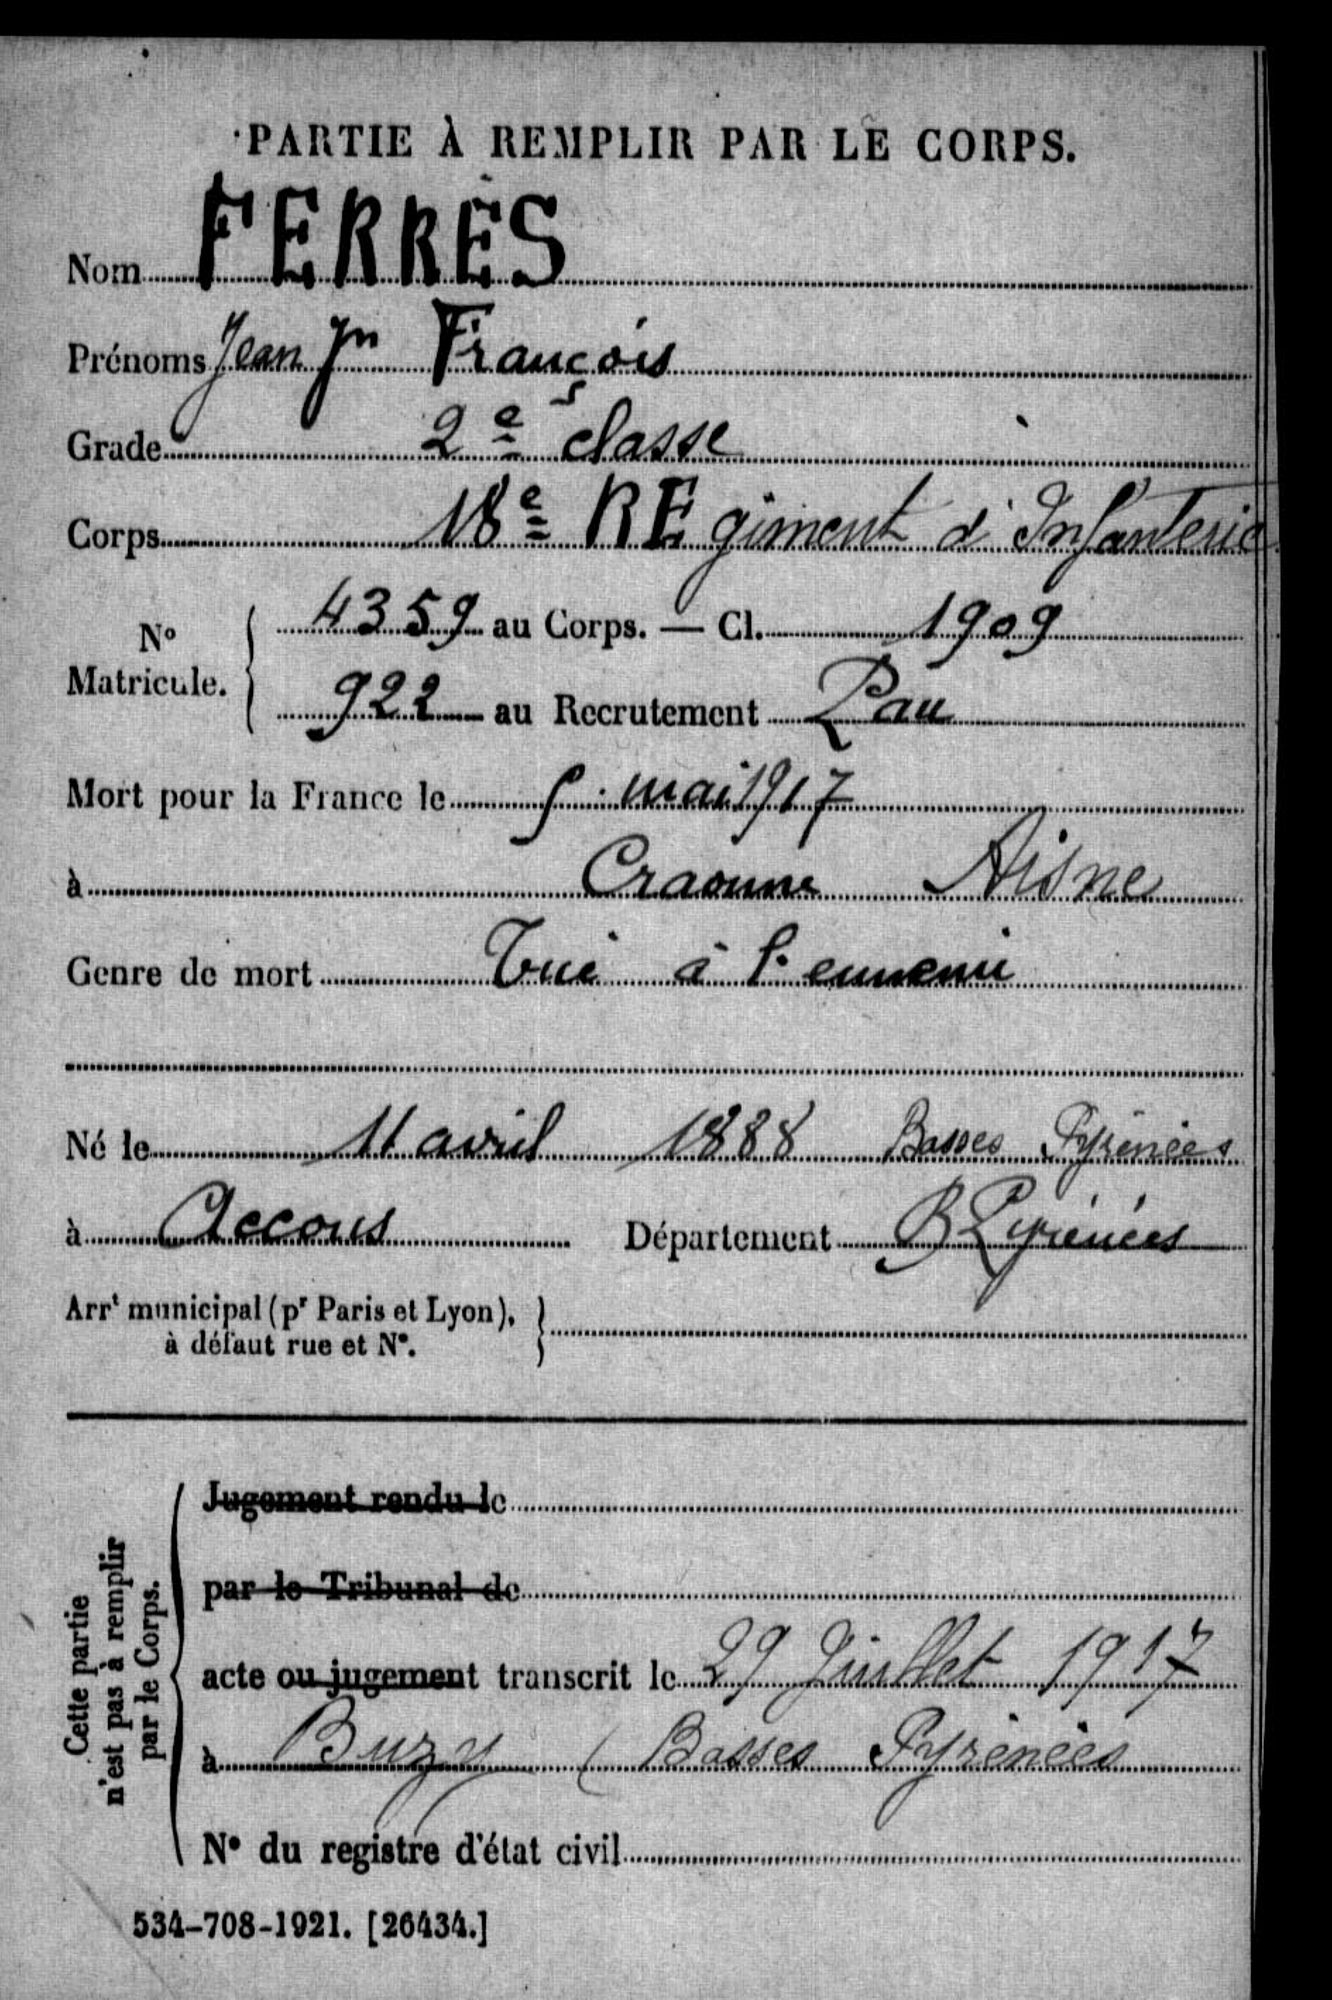 PARTIE À REMPLIR PAR LE CORPS.
Nom FERRÈS
Prénoms Jean Jn François
Grade 2e classe
Corps 18e REgiment d'Infanterie
No Matricule. 4359 au Corps. — Cl. 1909
922 au Recrutement Pau
Mort pour la France le 5 mai 1917
à Craonne Aisne
Genre de mort Tué à l'ennemi
Né le 11 avril 1888 Basses Pyrénées
à Accous Département B Pyrénées
Arrt municipal (pr Paris et Lyon),
à défaut rue et No.
Jugement rendu le
par le Tribunal de
acte ou jugement transcrit le 29 Juillet 1917
à Buzy (Basses Pyrénées
No du registre d'état civil
Cette partie
n'est pas à remplir
par le Corps.
534-708-1921. [26434.]